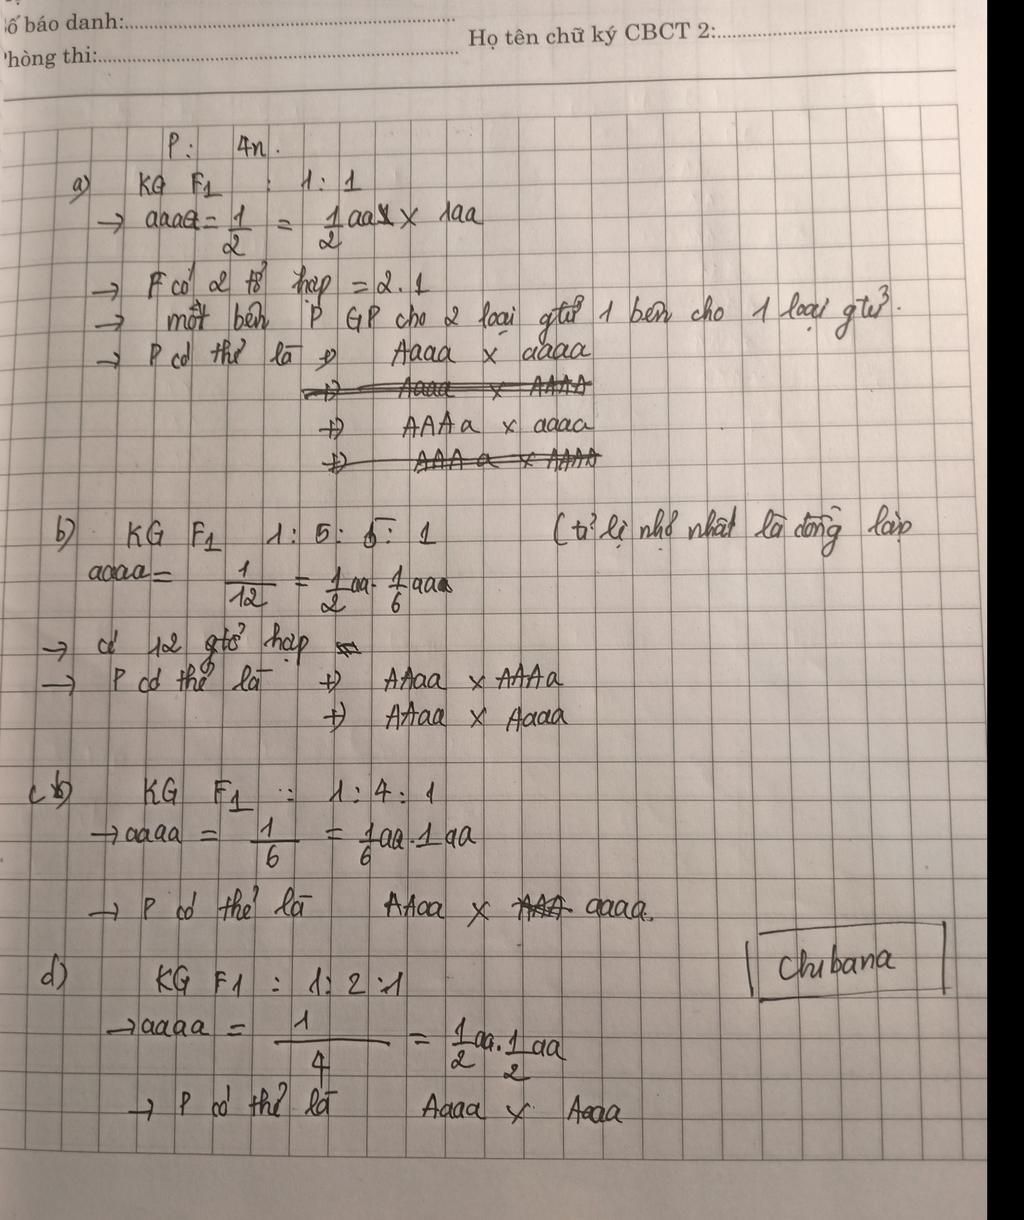 ố báo danh:
Họ tên chữ ký CBCT 2:
hòng thi:
P: 4n.
a) KG F1 : 1 : 1
→ aaaa = 1/2 = 1/2 aa x 1aa
→ F có 2 tổ hợp = 2.1
→ một bên P GP cho 2 loại gtử 1 bên cho 1 loại gtử.
→ P có thể là +) Aaaa x aaaa
+) Aaaa x AAAA
+) AAAa x aaaa
+) AAAa x AAAA
b) KG F1 1 : 5 : 5 : 1 (tỉ lệ nhỏ nhất là đồng lặp
aaaa = 1/12 = 1/2 aa . 1/6 aa
→ có 12 gtổ hợp
→ P có thể là +) AAaa x AAAa
+) AAaa x Aaaa
c) KG F1 : 1 : 4 : 1
→ aaaa = 1/6 = 1/6 aa . 1 aa
→ P có thể là AAaa x AAA aaaa.
Chubana
d) KG F1 : 1 : 2 : 1
→ aaaa = 1/4 = 1/2 aa . 1/2 aa
→ P có thể là Aaaa x Aaaa